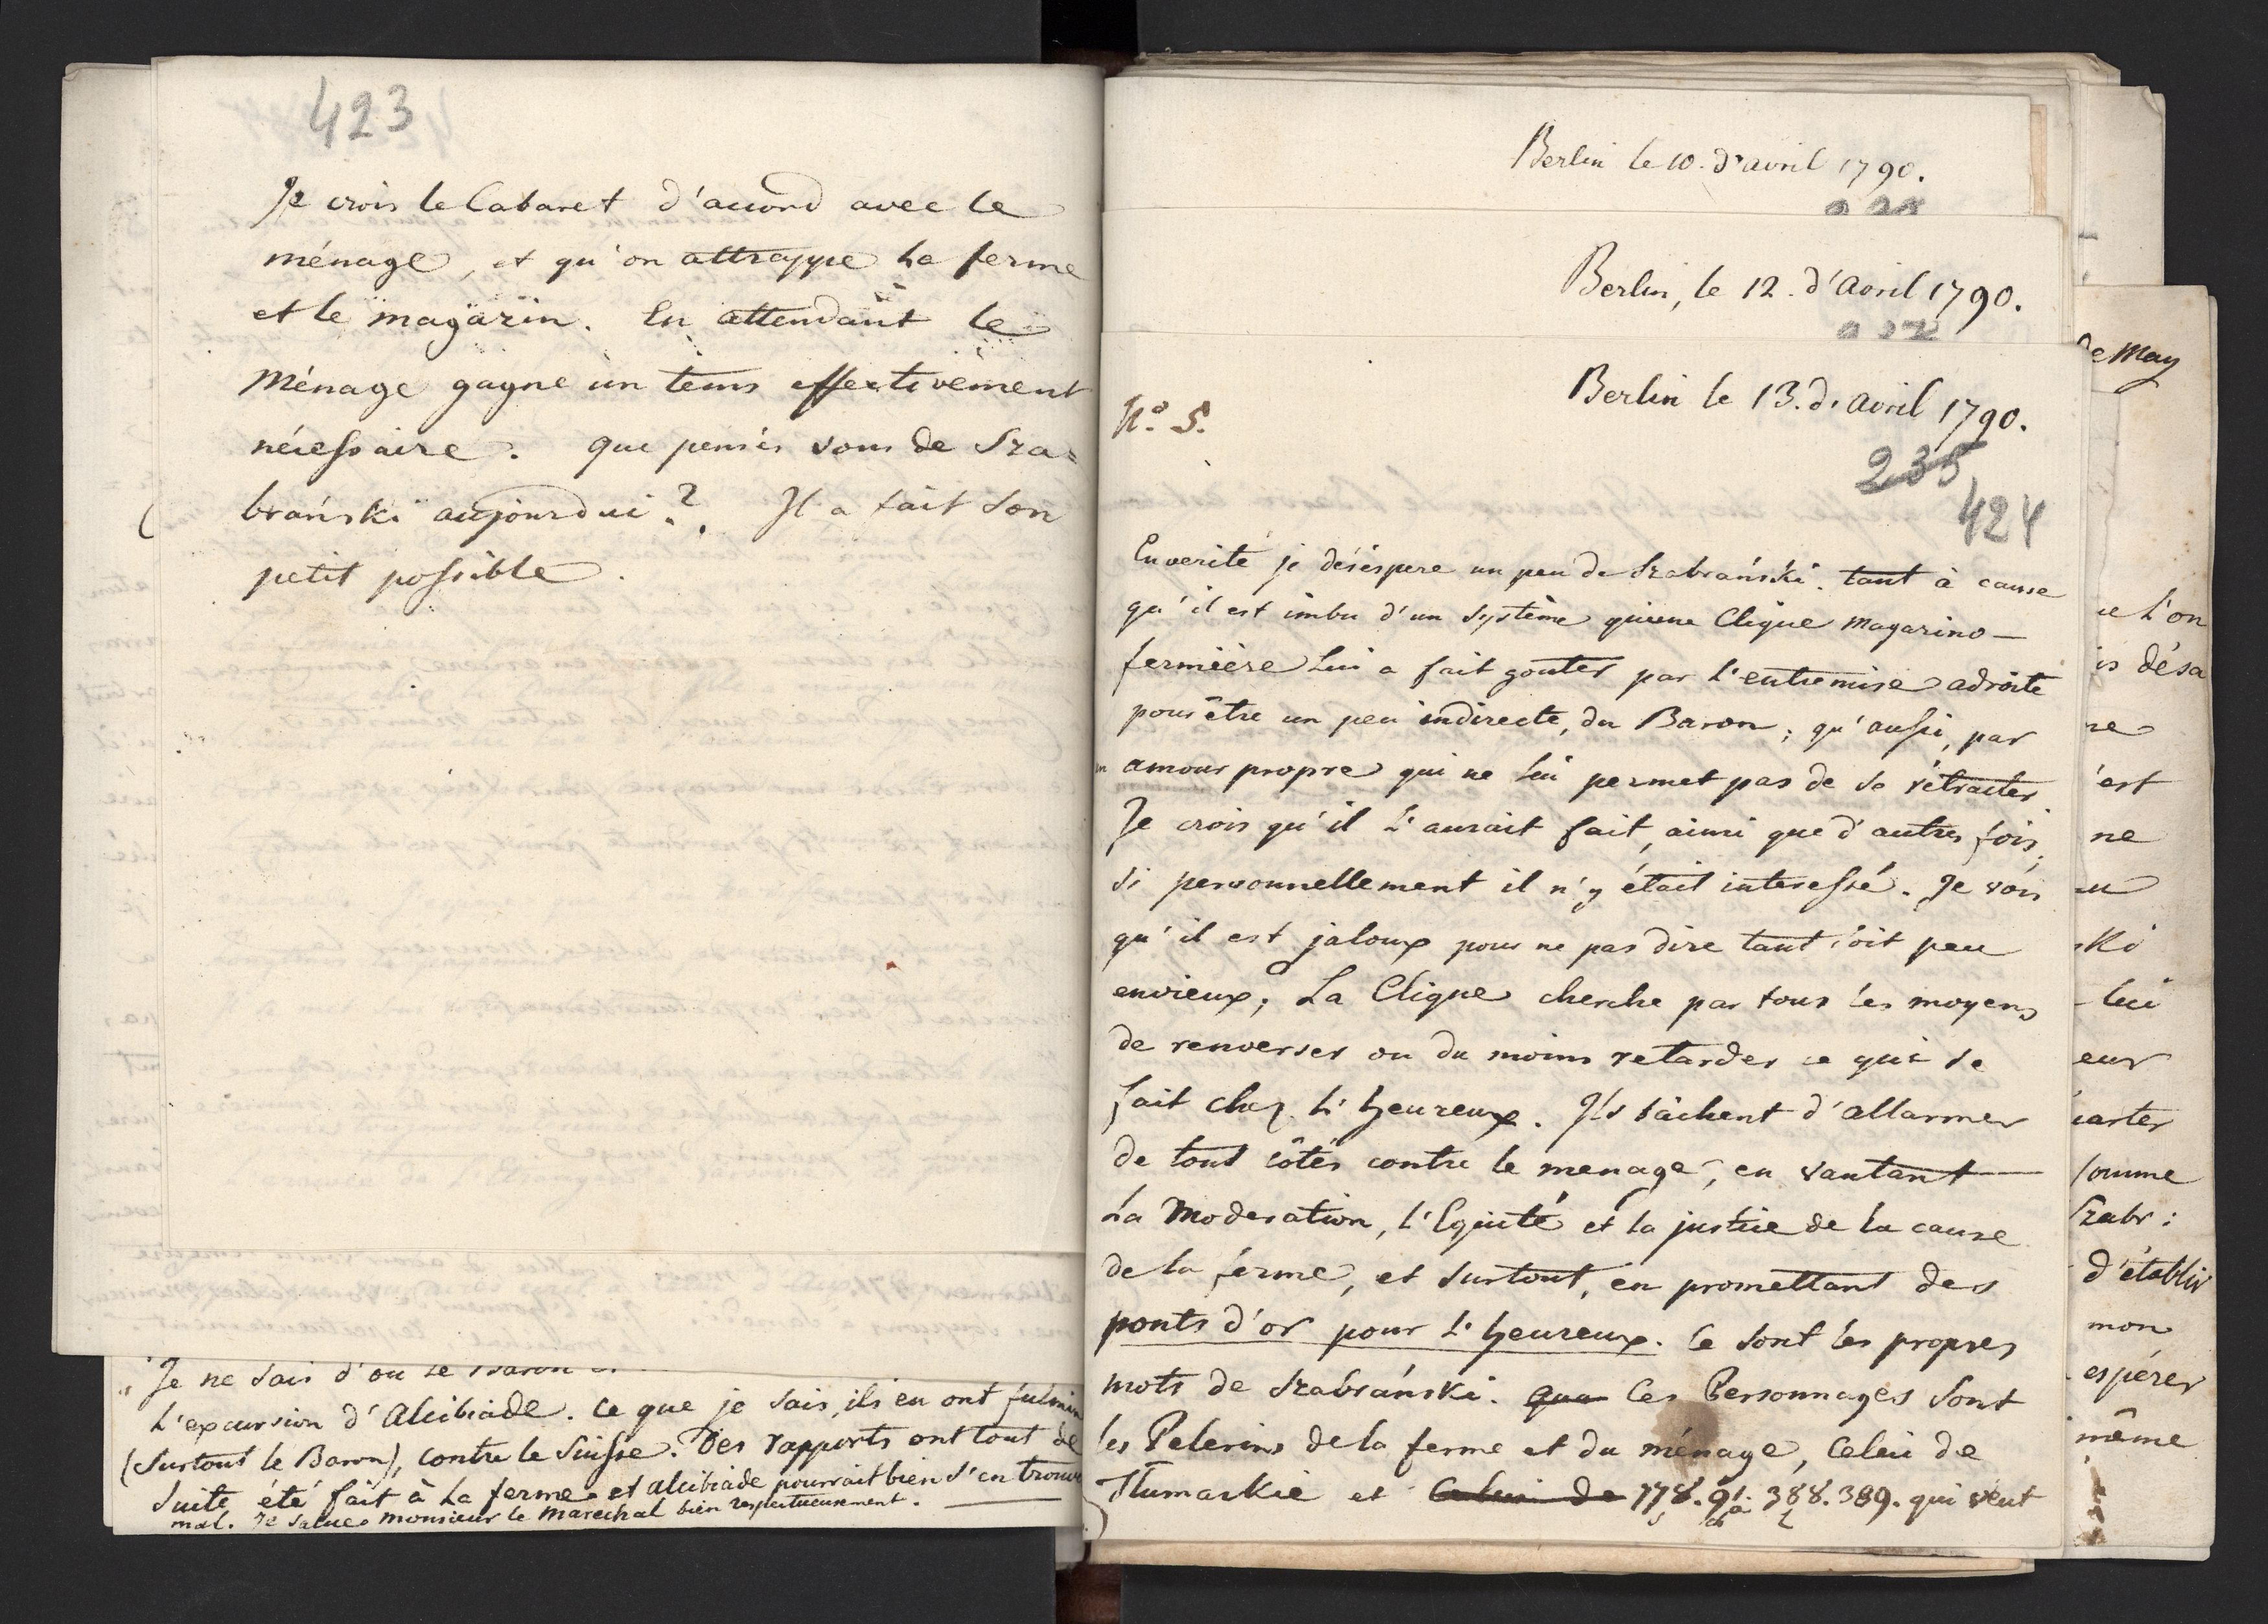 423
Je crois le Cabaret d'accord avec le
ménage, et qu'on attrappe la ferme
et le magazin. En attendant le
Ménage gagne un tems effectivement
nécessaire. Que pensés vous de Sza=
brański aujourdui? Il a fait son
petit possible.
"Je ne sais d'ou le Baron
L'excursion d'Alcibiade. Ce que je sais, ils en ont fulmin
(surtout le Baron), contre le Suisse. Des rapports ont tout de
suite été fait à la ferme et alcibiade pourrait bien s'en trouv
mal. Je salue Monsieur le Marechal bien respectueusement.
Berlin le 10. d'avril 1790.
Berlin, le 12. d'Avril 1790.
Berlin le 13. d'avril 1790.
N.º 5.
235
424
En verité je désèspere un peu de Szabrański. tant à cause
qu'il est imbu d'un Système qu'une Clique magazino-
fermière lui a fait gouter par l'entremise adroite
pour être un peu indirecte, du Baron; qu'aussi, par
un amour propre qui ne lui permet pas de se rétracter.
Je crois qu'il l'aurait fait, ainsi que d'autres fois,
si personnellement il n'y était interessé. Je vois
qu'il est jaloux pour ne pas dire tant soit peu
envieux; La Clique cherche par tous les moyens
de renverser ou du moins retarder ce qui se
fait chez L'heureux. Ils tâchent d'allarmer
de tout côtés contre le menage, en vantant
la Moderation, l'Equité et la justice de la cause
de la ferme, et surtout, en promettant des
ponts d'or pour L'heureux. Ce sont les propres
mots de Szabrański. Que Ces Personnages sont
les Pelerins de la ferme et du ménage, Celui de
Tlumaskie et Celui de 778. 91. 388. 389. qui veut
de May
ue l'on
is désa
ne
'est
ne
ski
lui
eur
carter
comme
Szabr:
d'établir
mon
espérer
même